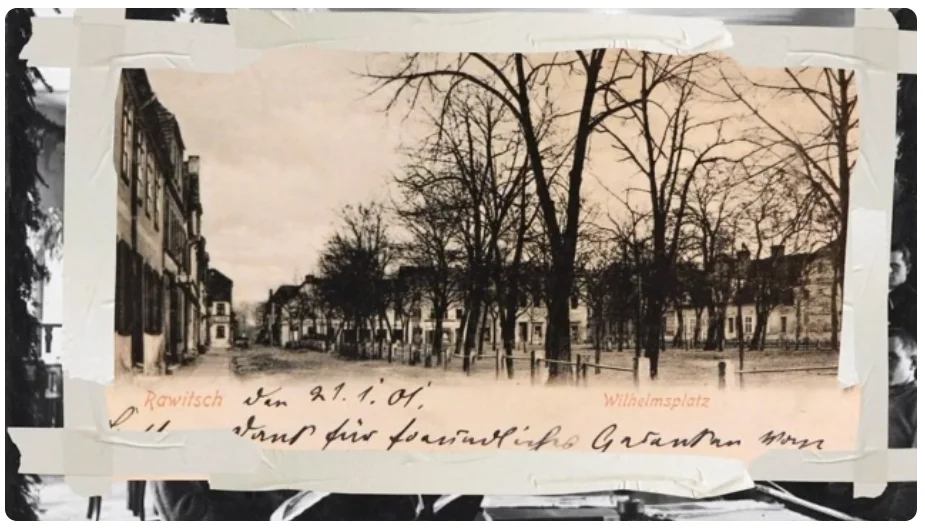 Rawitsch den 21.1.01. Wilhelmsplatz
dank für freundliches Gedanken vom